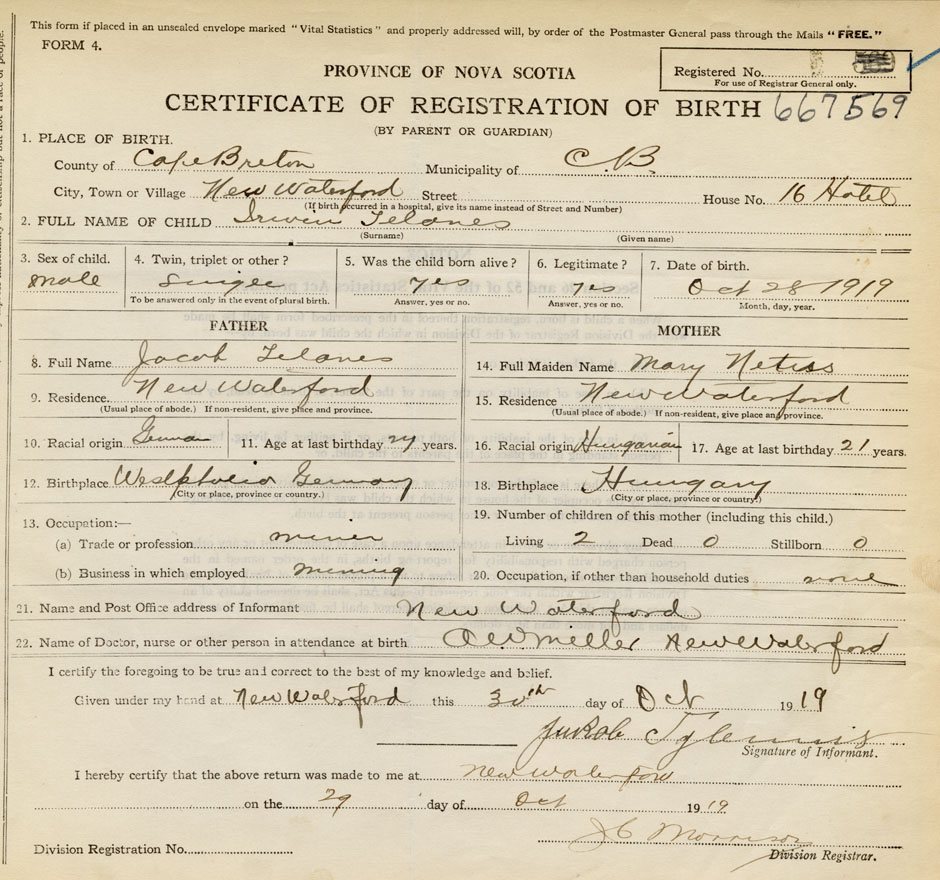 This form if placed in an unsealed envelope marked "Vital Statistics" and properly addressed will, by order of the Postmaster General pass through the Mails "FREE."
FORM 4.
Registered No.
For use of Registrar General only.
PROVINCE OF NOVA SCOTIA
CERTIFICATE OF REGISTRATION OF BIRTH 667569
(BY PARENT OR GUARDIAN)
1. PLACE OF BIRTH.
County of Cape Breton Municipality of C.B.
City, Town or Village New Waterford Street House No. 16 Hotel
(If birth occurred in a hospital, give its name instead of Street and Number)
2. FULL NAME OF CHILD Irwin Telanes
(Surname) (Given name)
3. Sex of child. 4. Twin, triplet or other? 5. Was the child born alive? 6. Legitimate? 7. Date of birth.
male Single yes yes Oct 28 1919
To be answered only in the event of plural birth. Answer, yes or no. Answer, yes or no. Month, day, year.
FATHER
8. Full Name Jacob Telanes
9. Residence. New Waterford
(Usual place of abode.) If non-resident, give place and province.
10. Racial origin German 11. Age at last birthday 27 years.
12. Birthplace Germany
(City or place, province or country.)
13. Occupation:—
(a) Trade or profession miner
(b) Business in which employed mining
MOTHER
14. Full Maiden Name Mary Netiss
15. Residence New Waterford
(Usual place of abode.) If non-resident, give place and province.
16. Racial origin Hungarian 17. Age at last birthday 21 years.
18. Birthplace Hungary
(City or place, province or country.)
19. Number of children of this mother (including this child.)
Living 2 Dead 0 Stillborn 0
20. Occupation, if other than household duties none
21. Name and Post Office address of Informant New Waterford
22. Name of Doctor, nurse or other person in attendance at birth Miller New Waterford
I certify the foregoing to be true and correct to the best of my knowledge and belief.
Given under my hand at New Waterford this 30th day of Oct 1919
Jukob
Signature of Informant.
I hereby certify that the above return was made to me at New Waterford
on the 29 day of Oct 1919
J C Morrison
Division Registration No. Division Registrar.